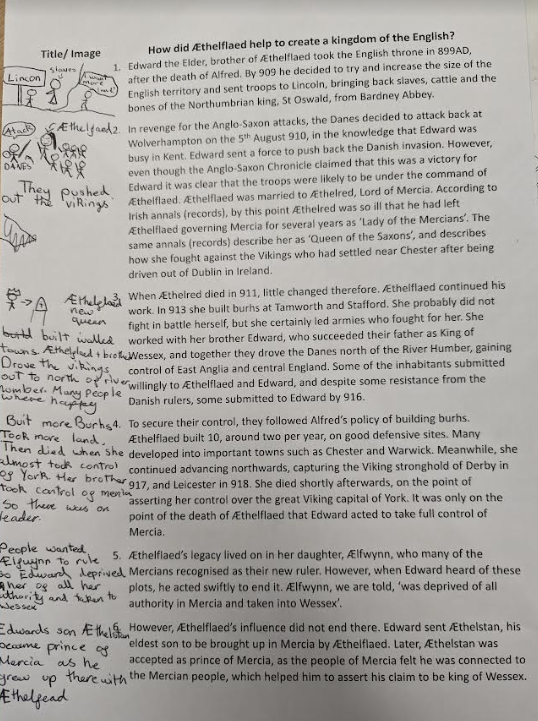 How did Æthelflaed help to create a kingdom of the English?
Title/ Image
1. Edward the Elder, brother of Æthelflaed took the English throne in 899AD,
after the death of Alfred. By 909 he decided to try and increase the size of the
English territory and sent troops to Lincoln, bringing back slaves, cattle and the
bones of the Northumbrian king, St Oswald, from Bardney Abbey.
slaves
Lincon
I want more land
2. In revenge for the Anglo-Saxon attacks, the Danes decided to attack back at
Wolverhampton on the 5th August 910, in the knowledge that Edward was
busy in Kent. Edward sent a force to push back the Danish invasion. However,
even though the Anglo-Saxon Chronicle claimed that this was a victory for
Edward it was clear that the troops were likely to be under the command of
Æthelflaed. Æthelflaed was married to Æthelred, Lord of Mercia. According to
Irish annals (records), by this point Æthelred was so ill that he had left
Æthelflaed governing Mercia for several years as 'Lady of the Mercians'. The
same annals (records) describe her as 'Queen of the Saxons', and describes
how she fought against the Vikings who had settled near Chester after being
driven out of Dublin in Ireland.
Atack
Æthelflaed
DANES
They pushed
out the vikings
3. When Æthelred died in 911, little changed therefore. Æthelflaed continued his
work. In 913 she built burhs at Tamworth and Stafford. She probably did not
fight in battle herself, but she certainly led armies who fought for her. She
worked with her brother Edward, who succeeded their father as King of
Wessex, and together they drove the Danes north of the River Humber, gaining
control of East Anglia and central England. Some of the inhabitants submitted
willingly to Æthelflaed and Edward, and despite some resistance from the
Danish rulers, some submitted to Edward by 916.
Æthelflaed
new
queen
built walled
towns. Æthelflaed + brother
Drove the vikings
out to north of river
humber. Many People
where happy
4. To secure their control, they followed Alfred's policy of building burhs.
Æthelflaed built 10, around two per year, on good defensive sites. Many
developed into important towns such as Chester and Warwick. Meanwhile, she
continued advancing northwards, capturing the Viking stronghold of Derby in
917, and Leicester in 918. She died shortly afterwards, on the point of
asserting her control over the great Viking capital of York. It was only on the
point of the death of Æthelflaed that Edward acted to take full control of
Mercia.
Buit more Burhs
Took more land.
Then died when she
almost took control
of York. Her brother
took control of mercia
So there was on
leader.
5. Æthelflaed's legacy lived on in her daughter, Ælfwynn, who many of the
Mercians recognised as their new ruler. However, when Edward heard of these
plots, he acted swiftly to end it. Ælfwynn, we are told, 'was deprived of all
authority in Mercia and taken into Wessex'.
People wanted
Ælfwynn to rule
so Edward deprived
her of all her
authority and taken to
Wessex
6. However, Æthelflaed's influence did not end there. Edward sent Æthelstan, his
eldest son to be brought up in Mercia by Æthelflaed. Later, Æthelstan was
accepted as prince of Mercia, as the people of Mercia felt he was connected to
the Mercian people, which helped him to assert his claim to be king of Wessex.
Edwards son Æthelstan
became prince of
Mercia as he
grew up there with
Æthelflead